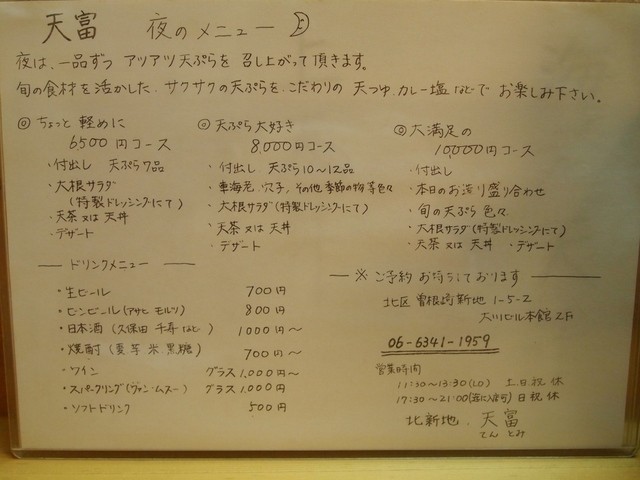 天富 夜のメニュー
夜は、一品ずつ アツアツ天ぷらを 召し上がって頂きます。
旬の食材を活かした、サクサクの天ぷらを、こだわりの 天つゆ、カレー塩などで お楽しみ下さい。
◎ ちょっと 軽めに
6500円コース
・付出し 天ぷら7品
・大根サラダ
(特製ドレッシングにて)
・天茶 又は 天丼
・デザート
◎ 天ぷら大好き
8,000円コース
・付出し 天ぷら10〜12品
・車海老、穴子、その他 季節の物等色々
・大根サラダ(特製ドレッシングにて)
・天茶 又は 天丼
・デザート
◎ 大満足の
10,000円コース
・付出し
・本日のお造り盛り合わせ
・旬の天ぷら 色々
・大根サラダ(特製ドレッシングにて)
・天茶 又は 天丼 ・デザート
ドリンクメニュー
・生ビール 700円
・ビンビール(アサヒ モルツ) 800円
・日本酒(久保田 千寿など) 1000円〜
・焼酎(麦 芋 米 黒糖) 700円〜
・ワイン グラス1,000円〜
・スパークリング(ヴァン・ムスー) グラス1,000円
・ソフトドリンク 500円
※ ご予約 お待ちしております
北区 曽根崎新地 1-5-2
大川ビル本館 2F
06-6341-1959
営業時間
11:30〜13:30(LO) 土.日.祝 休
17:30〜21:00 日 祝 休
北新地、天富
てん とみ